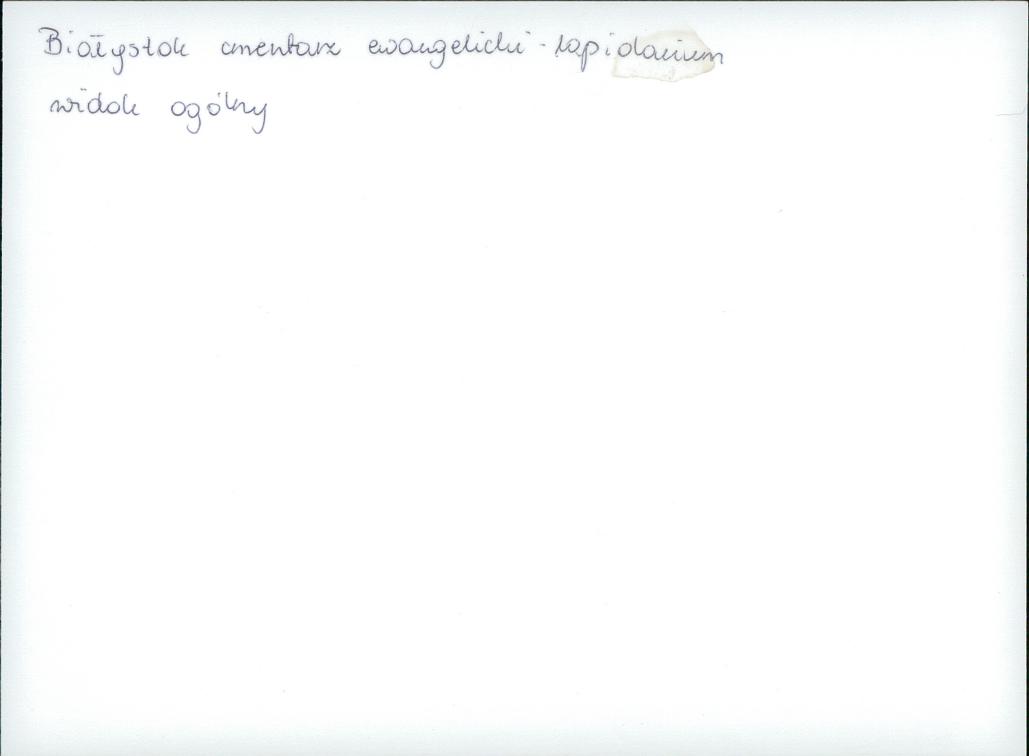 Białystok cmentarz ewangelicki - lapidarium
widok ogólny